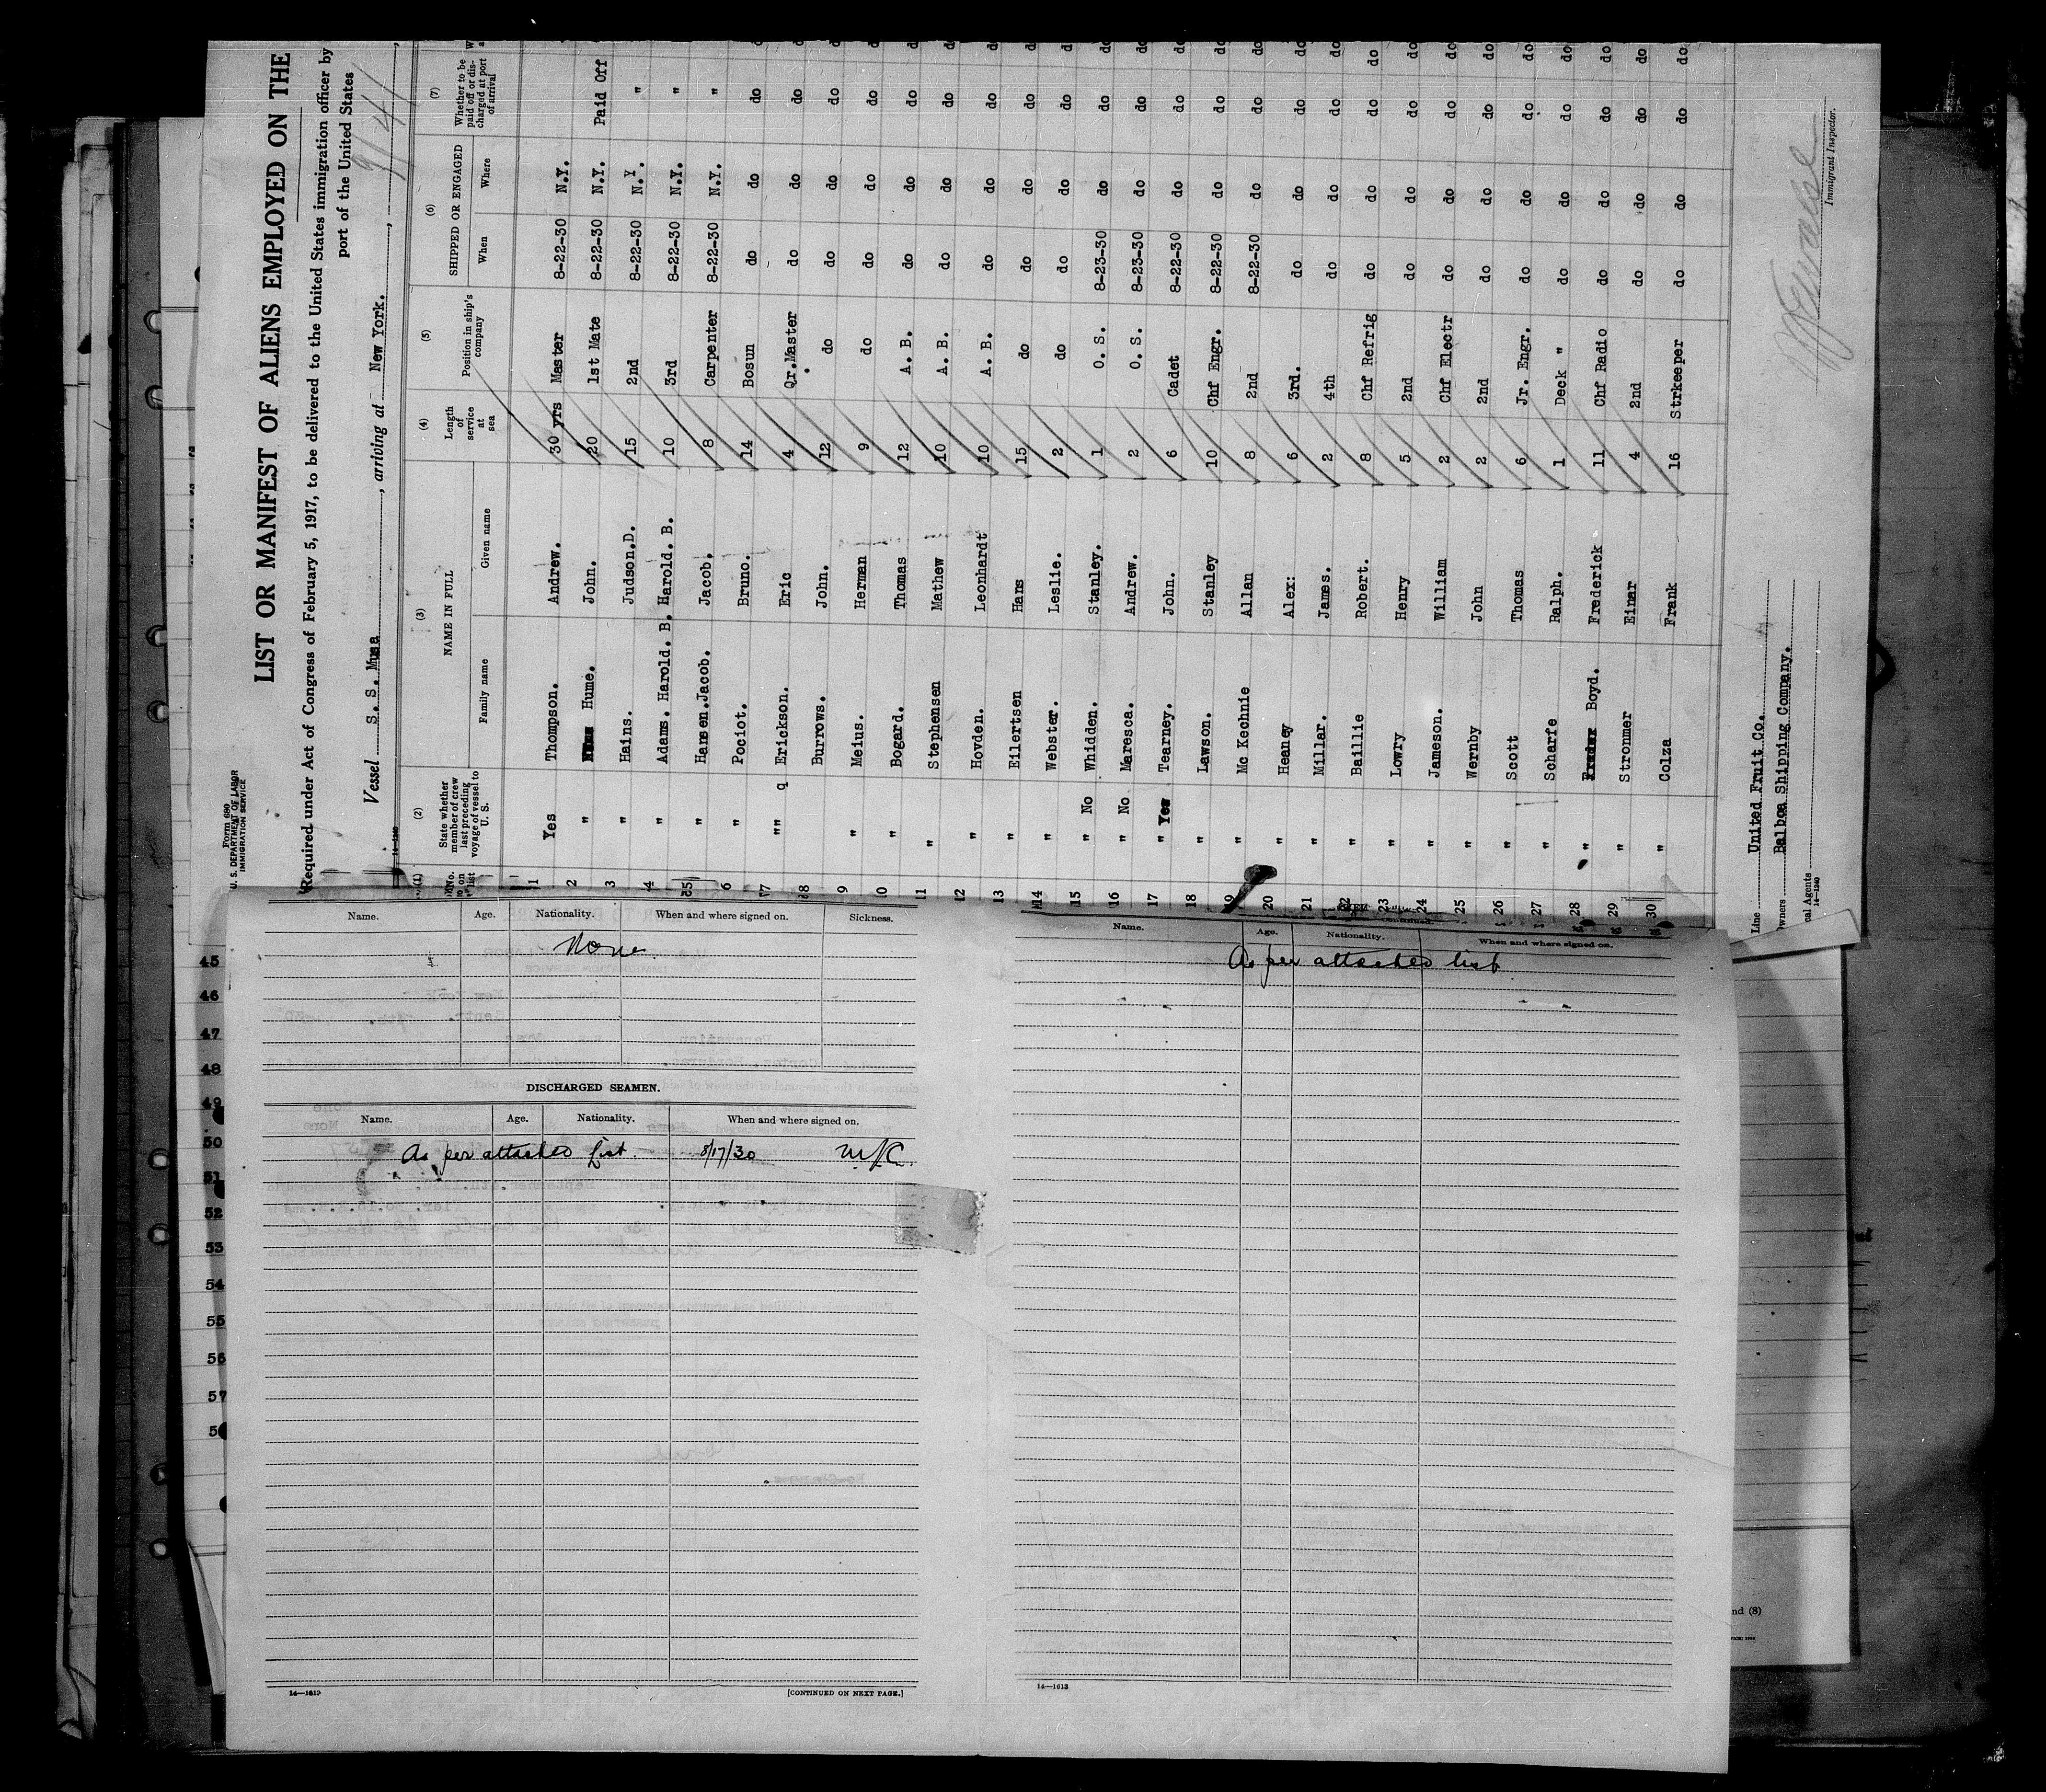 Form 680
U. S. DEPARTMENT OF LABOR
IMMIGRATION SERVICE
LIST OR MANIFEST OF ALIENS EMPLOYED ON THE
Required under Act of Congress of February 5, 1917, to be delivered to the United States immigration officer by
port of the United States
Vessel S. S. Musa, arriving at New York.,
(1) No. on list (2) State whether member of crew last preceding voyage of vessel to U. S. (3) NAME IN FULL Family name Given name (4) Length of service at sea (5) Position in ship's company (6) SHIPPED OR ENGAGED When Where (7) Whether to be paid off or discharged at port of arrival
1 Yes Thompson. Andrew. 30 yrs Master 8-22-30 N.Y.
2 " Hume. John. 20 1st Mate 8-22-30 N.Y. Paid Off
3 " Hains. Judson.D. 15 2nd 8-22-30 N.Y. "
4 " Adams. Harold. B. Harold. B. 10 3rd 8-22-30 N.Y. "
5 " Hansen.Jacob. Jacob. 8 Carpenter 8-22-30 N.Y. "
6 " Pociot. Bruno. 14 Bosun do do do d
7 "" q Erickson. Eric 4 Qr.Master do do do d
8 Burrows. John. 12 do do do do d
9 " Meius. Herman 9 do do do do d
10 " Bogard. Thomas 12 A. B. do do do d
11 " Stephensen Mathew 10 A. B. do do do d
12 " Hovden. Leonhardt 10 A. B. do do do d
13 " Eilertsen Hans 15 do do do do d
14 " Webster. Leslie. 2 do do do do d
15 " No Whidden. Stanley. 1 O. S. 8-23-30 do do do
16 " No Maresca. Andrew. 2 O. S. 8-23-30 do do do
17 " Yes Tearney. John. 6 Cadet 8-22-30 do do do
18 " Lawson. Stanley 10 Chf Engr. 8-22-30 do do do
19 " Mc Kechnie Allan 8 2nd 8-22-30 do do do
20 " Heaney Alex: 6 3rd. do do do do
21 " Millar. James. 2 4th do do do do
22 " Baillie Robert. 8 Chf Refrig do do do do
23 " Lowry Henry 5 2nd do do do do
24 " Jameson. William 2 Chf Electr do do do do
25 " Wernby John 2 2nd do do do do
26 " Scott Thomas 6 Jr. Engr. do do do do
27 " Scharfe Ralph. 1 Deck " do do do do
28 " Boyd. Frederick 11 Chf Radio do do do do
29 " Stronmer Einar 4 2nd do do do do
30 " Colza Frank 16 Strkeeper do do do do
Line United Fruit Co.
Owners Balboa Shipping Company.
cal Agents
14-1240
Immigrant Inspector.
Name. Age. Nationality. When and where signed on. Sickness.
None
DISCHARGED SEAMEN.
Name. Age. Nationality. When and where signed on.
As per attached list. 8/17/30
14—1613
[CONTINUED ON NEXT PAGE.]
Name. Age. Nationality. When and where signed on.
As per attached list
14—1613
45
46
47
48
49
50
51
52
53
54
55
56
57
5
nd (8)